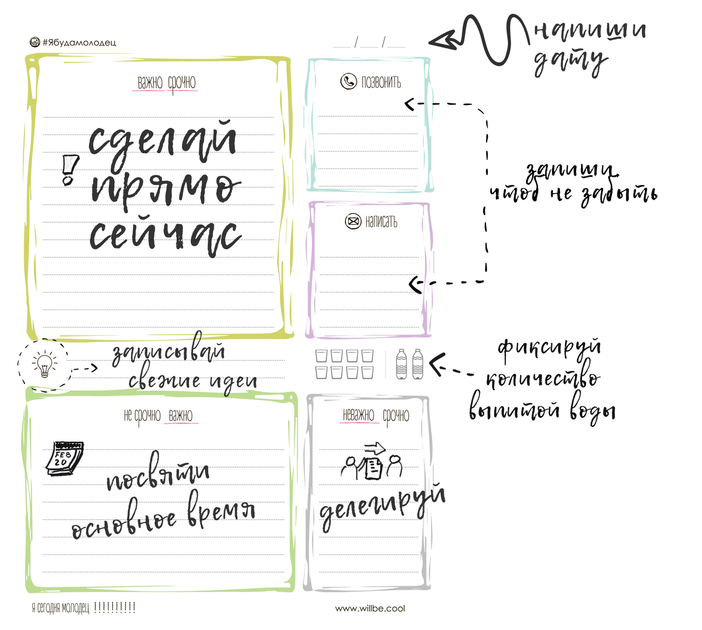 #Ябудамолодец
__/__/__
напиши
дату
важно срочно
сделай
прямо
сейчас
позвонить
запиши
чтоб не забыть
написать
записывай
свежие идеи
фиксируй
количество
выпитой воды
не срочно важно
FEB
20
посвяти
основное время
неважно срочно
делегируй
я сегодня молодец !!!!!!!!!!
www.willbe.cool